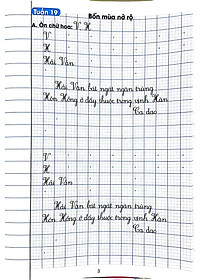 Tuần 19
Bốn mùa nở rộ
A. Ôn chữ hoa: V, H
V
H
Hải Vân
Hải Vân bát ngát nghìn trùng
Hòn Hồng ở đấy thuộc trong vịnh Hàn
Ca dao
V
H
Hải Vân
Hải Vân bát ngát nghìn trùng
Hòn Hồng ở đấy thuộc trong vịnh Hàn
Ca dao
3